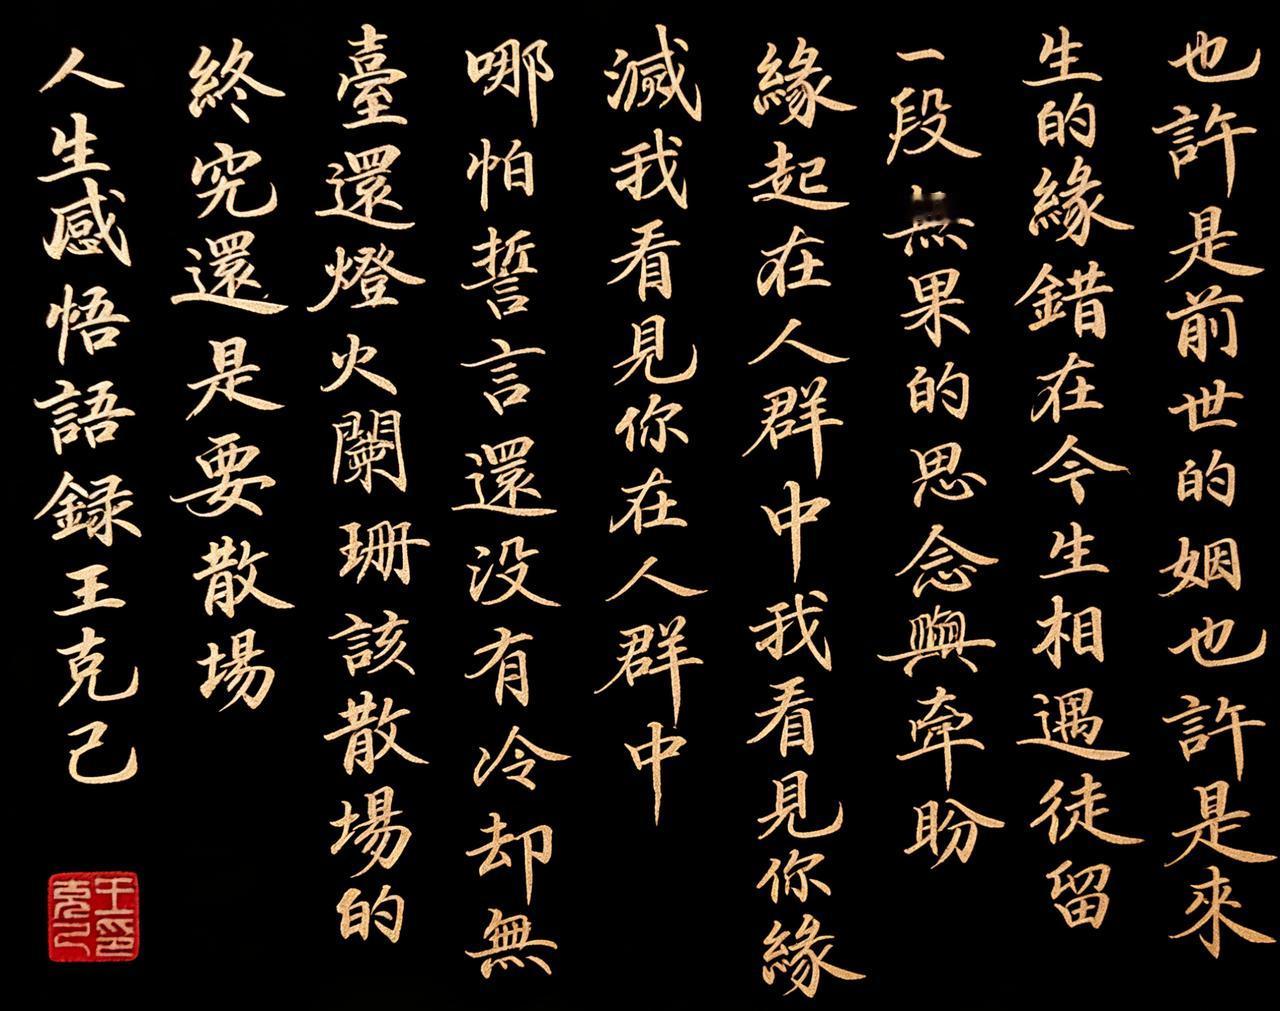 也許是前世的姻也許是來
生的緣錯在今生相遇徒留
一段無果的思念與牽盼
緣起在人群中我看見你緣
滅我看見你在人群中
哪怕誓言還没有冷却無
臺還燈火闌珊該散場的
終究還是要散場
人生感悟語録王克己